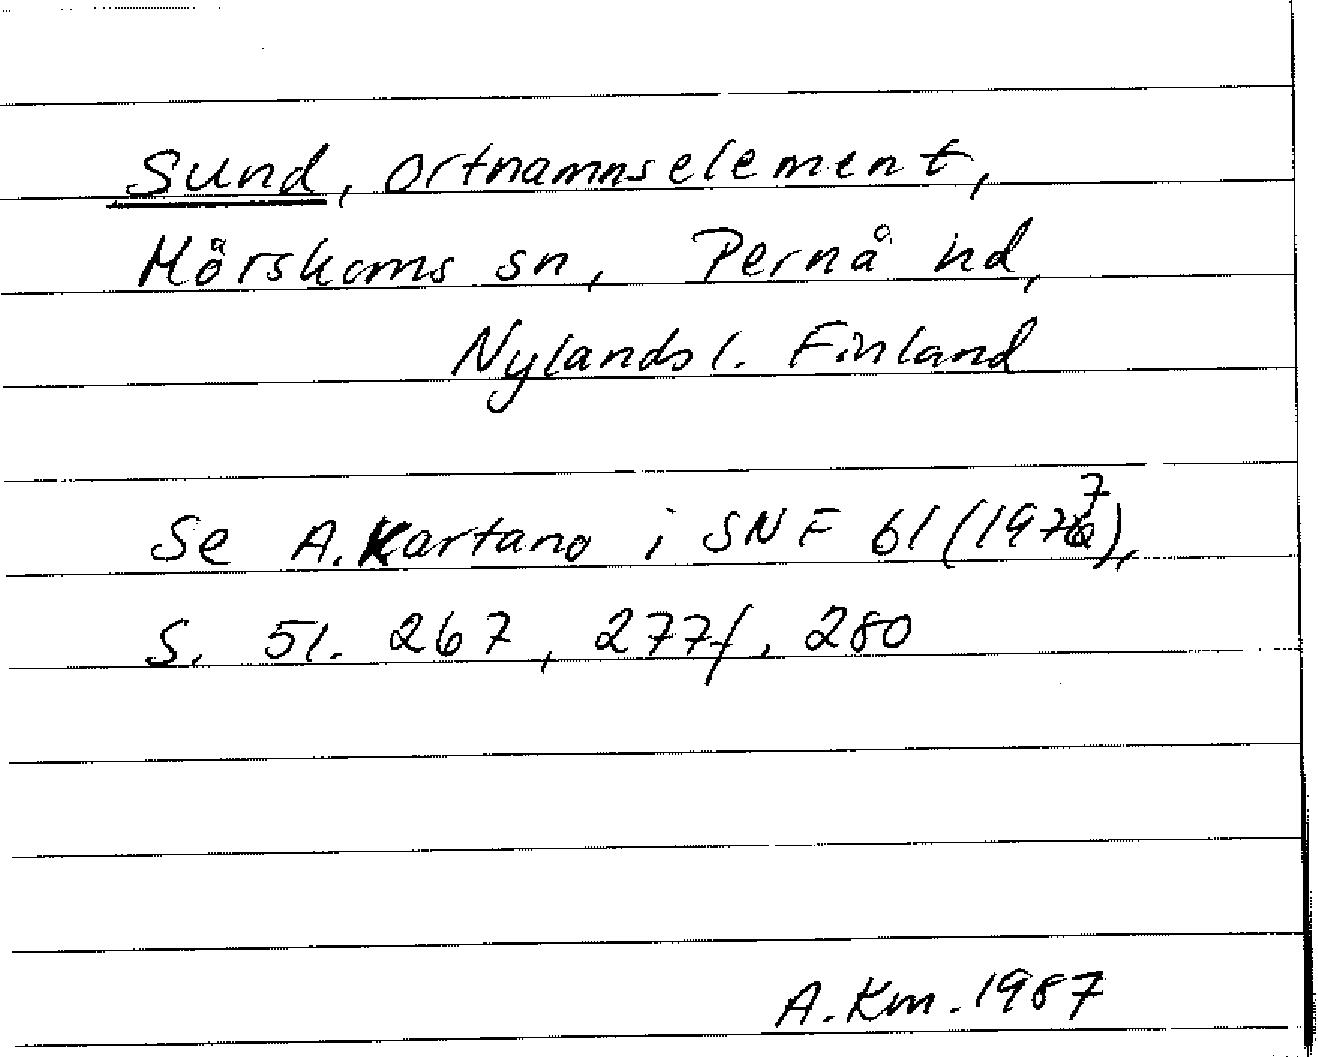 Sund, ortnamnselement,
Mörskoms sn, Pernå hd,
Nylands l. Finland
Se A. Kartano i SNF 61 (1977),
S. 51. 267, 277f, 280
A. Km. 1987